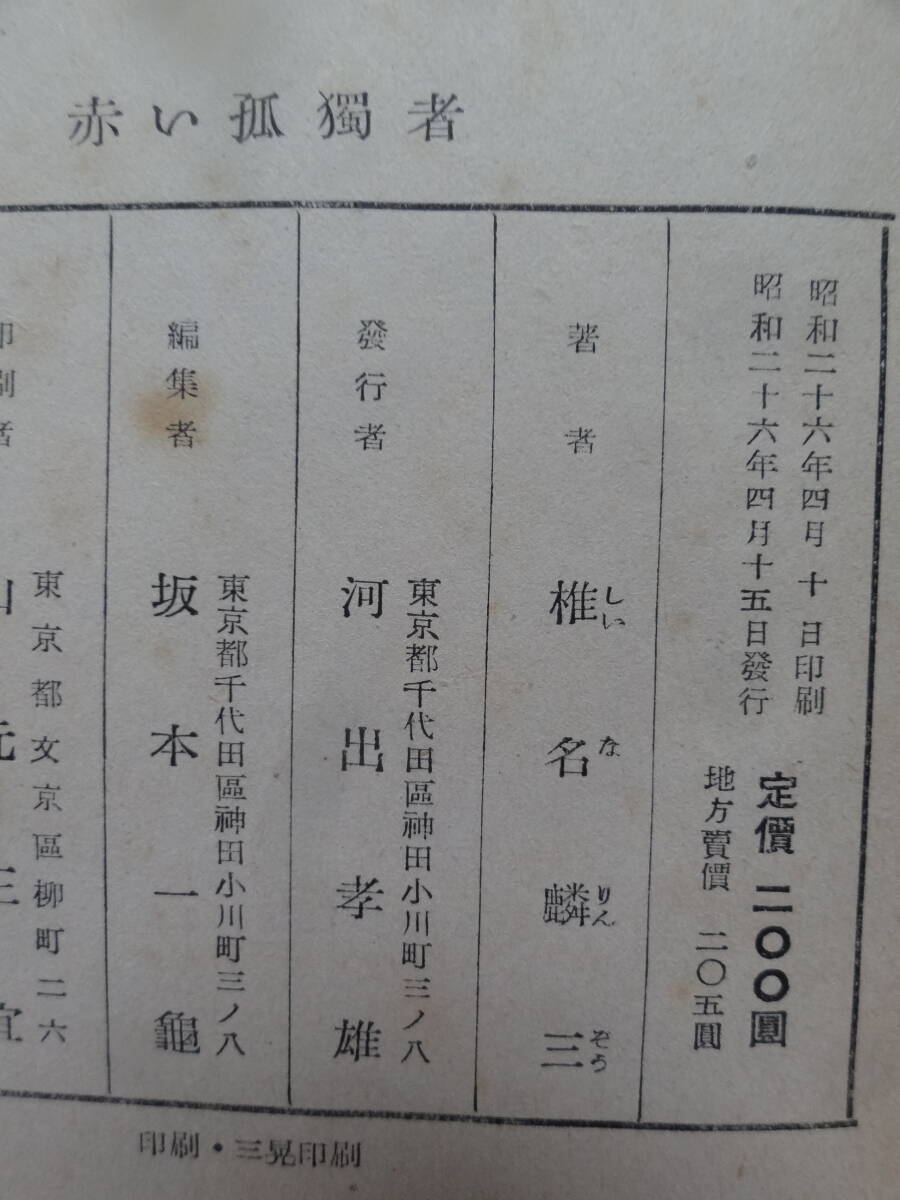 赤い孤獨者
昭和二十六年四月十日印刷
昭和二十六年四月十五日發行
定價 二〇〇圓
地方賣價 二〇五圓
著者
椎名麟三
しいなりんぞう
發行者
東京都千代田區神田小川町三ノ八
河出孝雄
編集者
東京都千代田區神田小川町三ノ八
坂本一龜
印刷者
東京都文京區柳町二六
印刷・三晃印刷